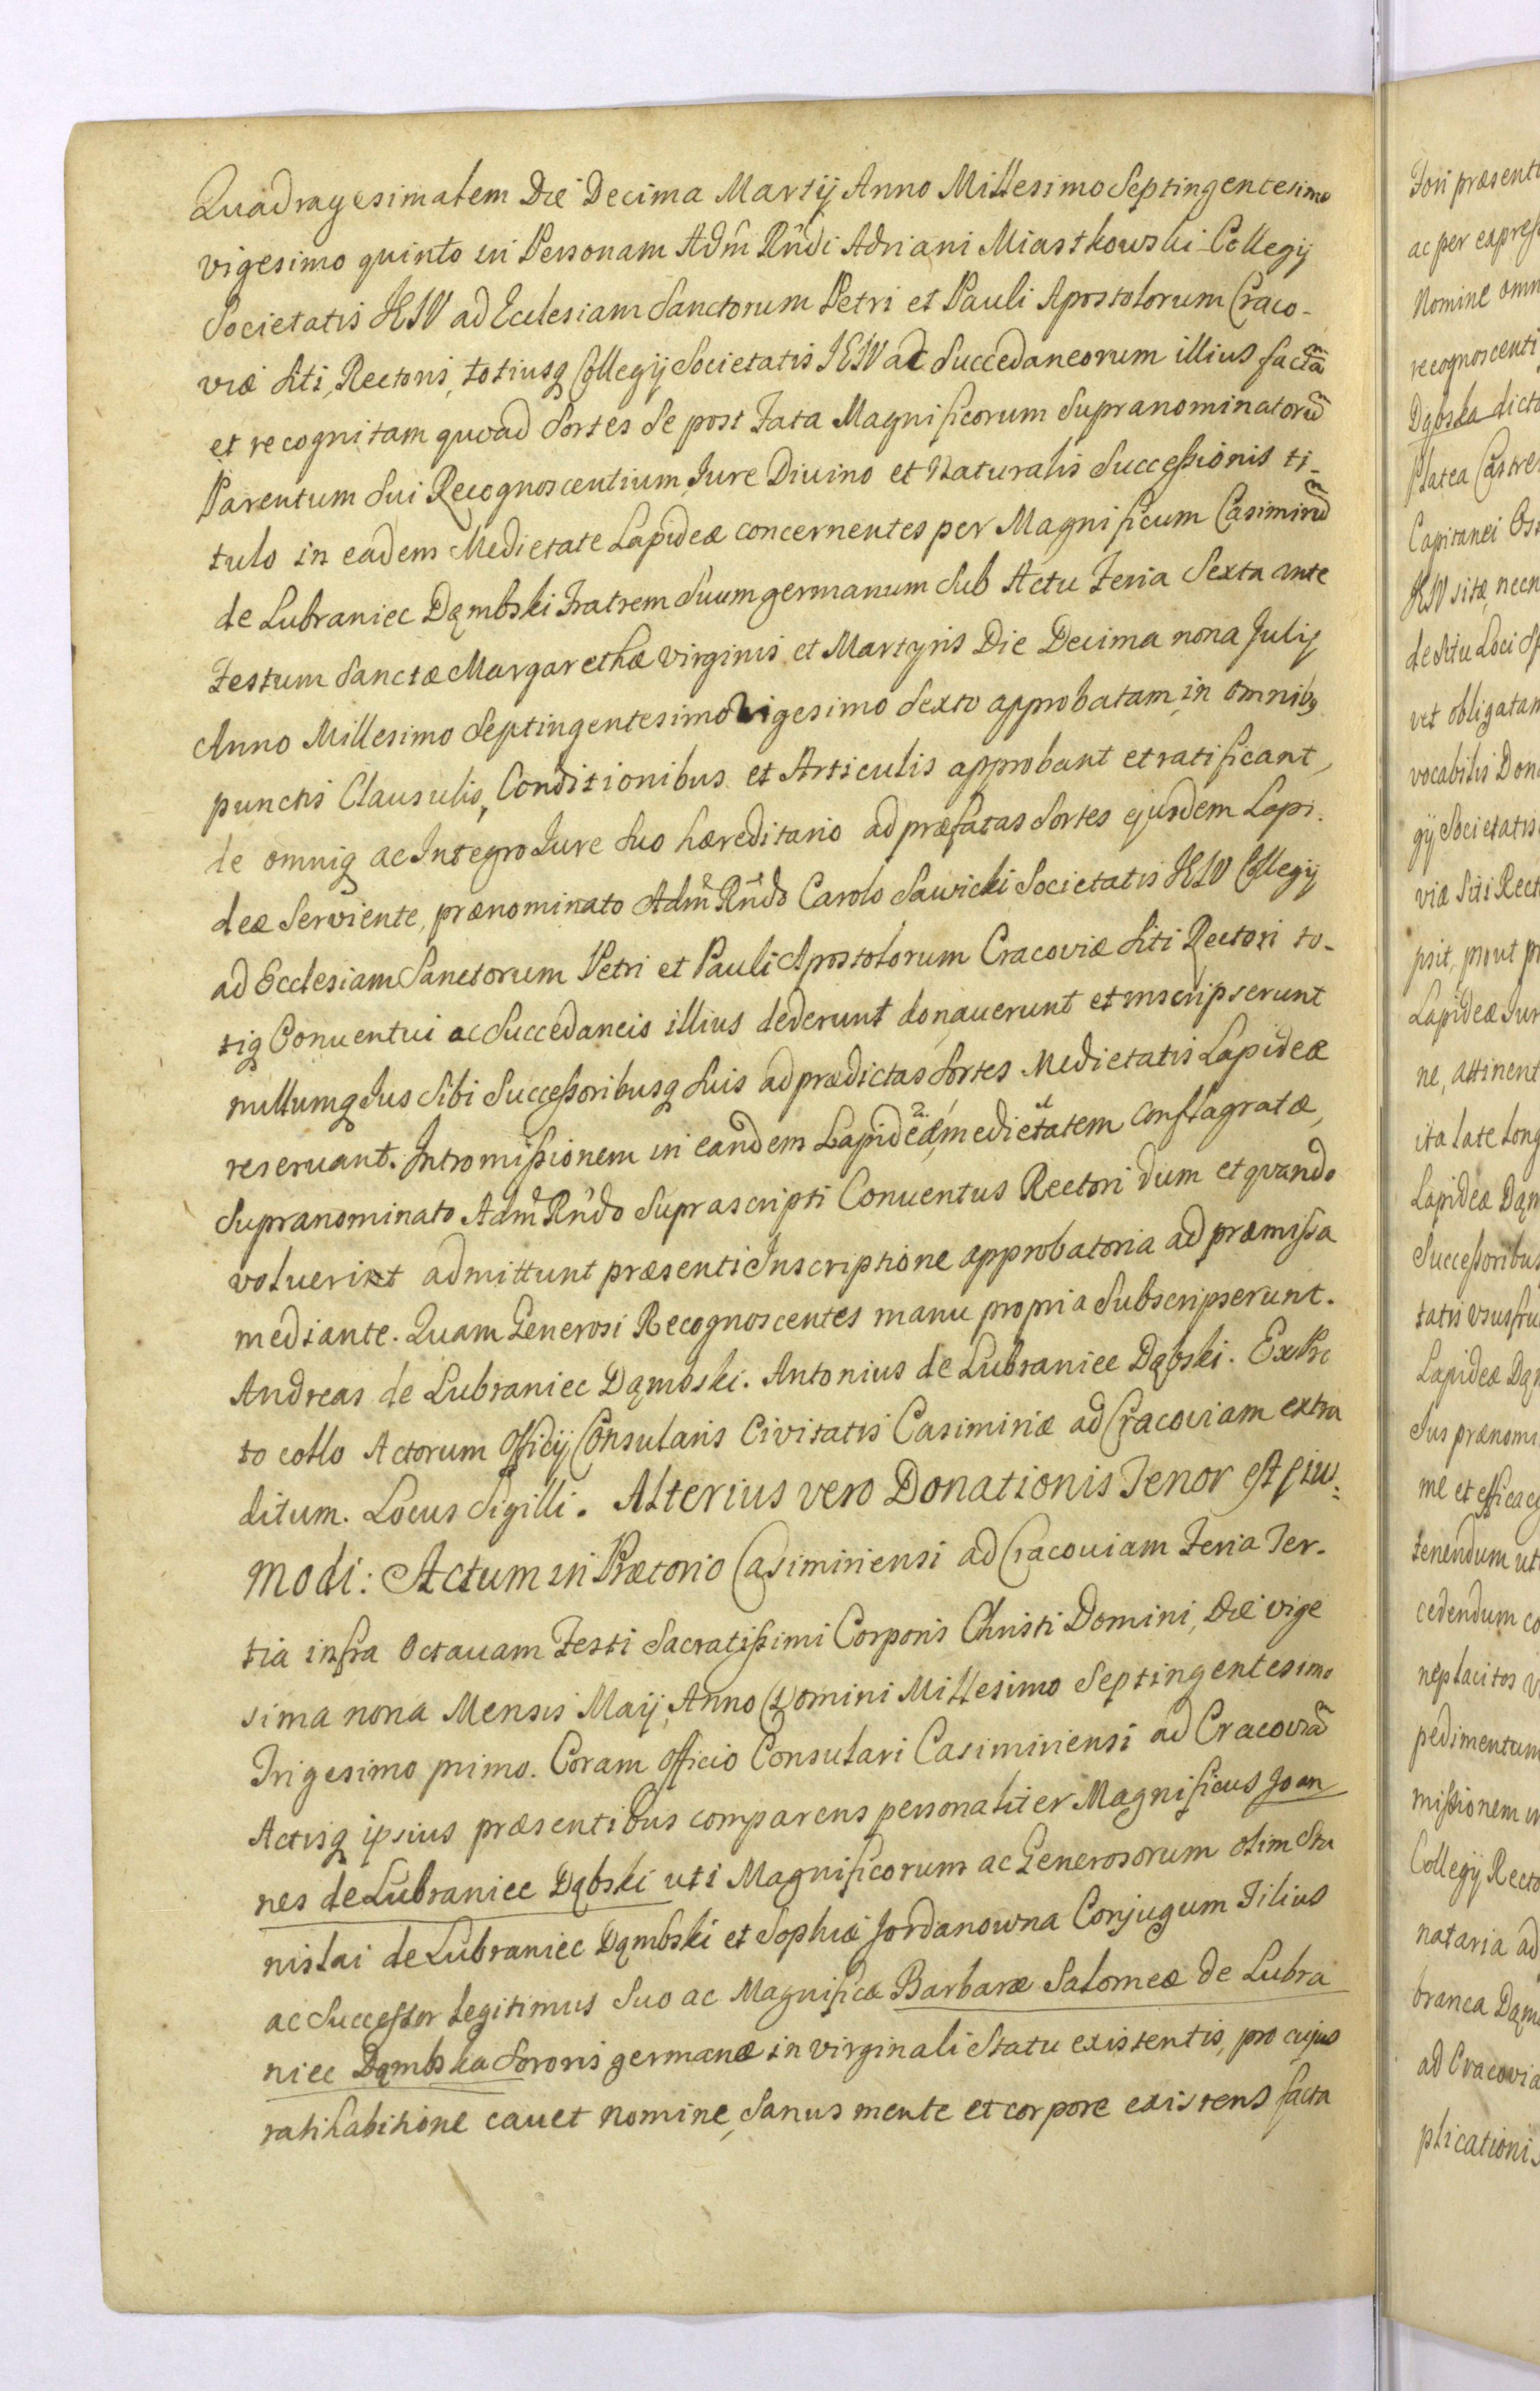 Quadragesimalem Die Decima Martij Anno Millesimo Septingentesimo
vigesimo quinto in Personam Adm̃ Rñdi Adriani Miastkowski Collegij
Societatis IESV ad Ecclesiam Sanctorum Petri et Pauli Apostolorum Craco-
viæ siti, Rectoris, totiusq Collegij Societatis IESV ac Succedaneorum illius factã
et recognitam quoad Sortes Se post Fata Magnificorum Supranominatorũ
Parentum Sui Recognoscentium Iure Divino et Naturalis Successionis ti-
tulo in eadem Medietate Lapideæ concernentes per Magnificum Casimirũ
de Lubraniec Dąmbski Fratrem Suum germanum Sub Actu Feria Sexta ante
Festum Sanctæ Margarethæ Virginis et Martyris Die Decima nona Julij
Anno Millesimo Septingentesimo Vigesimo Sexto approbatam, in omnibq
punctis Clausulis, Conditionibus et Articulis approbant et ratificant,
de omniq ac Integro Iure Suo hæreditario ad præfatas Sortes ejusdem Lapi-
deæ Serviente, prænominato Adm̃ Rñdo Carolo Sawicki Societatis IESV Collegij
ad Ecclesiam Sanctorum Petri et Pauli Apostolorum Cracoviæ Siti Rectori to-
tiq Conuentui ac Succedaneis illius dederunt donauerunt et inscripserunt
nullumq Ius Sibi Successoribusq Suis ad prædictas Sortes Medietatis Lapideæ
reseruant. Intromissionem in eandem Lapideæ, medietatem conflagratæ,
Supranominato Adm̃ Rñdo Suprascripti Conuentus Rectori dum et quando
voluerint admittunt præsenti Inscriptione approbatoria ad præmissa
mediante. Quam Generosi Recognoscentes manu propria Subscripserunt.
Andreas de Lubraniec Dąmbski. Antonius de Lubraniec Dąbski. Ex Pro
to collo Actorum Officij Consularis Civitatis Casimiriæ ad Cracoviam extra
ditum. Locus Sigilli. Alterius vero Donationis Tenor est ejus-
modi: Actum in Prætorio Casimiriensi ad Cracouiam Feria Ter-
tia infra Octauam Festi Sacratissimi Corporis Christi Domini, Die vige
sima nona Mensis Maij, Anno Domini Millesimo Septingentesimo
Trigesimo primo. Coram Officio Consulari Casimiriensi ad Cracoviã
Actisq ipsius præsentibus comparens personaliter Magnificus Joan
nes de Lubraniec Dąbski uti Magnificorum ac Generosorum olim Sta
nislai de Lubraniec Dąmbski et Sophiæ Jordanowna Conjugum Filius
ac Successor legitimus Suo ac Magnificæ Barbaræ Salomeæ de Lubra
niec Dąmbska Sororis germanæ in virginali Statu existentis, pro cujus
ratihabitione cauet nomine, Sanus mente et corpore existens facta
Fori præsenti
ac per express
Nomine omn
recognoscenti
Dąbska dicto
Platea Castre
Capitanei Os
IESV sitæ, necn
de Situ Loci
vet obligatam
vocabilis Don
gij Societatis
viæ Siti Rect
psit, prout
Lapideæ Iur
ne, attinent
ita late long
Lapideæ Dąm
Successoribus
tatis Ususfru
Lapideæ Dąm
Ius prænomi
me et efficaci
tenendum ut
cedendum co
neplacitos
pedimentum
missionem in
Collegij Recto
nataria ad
branca Dąm
ad Cracovia
plicationis